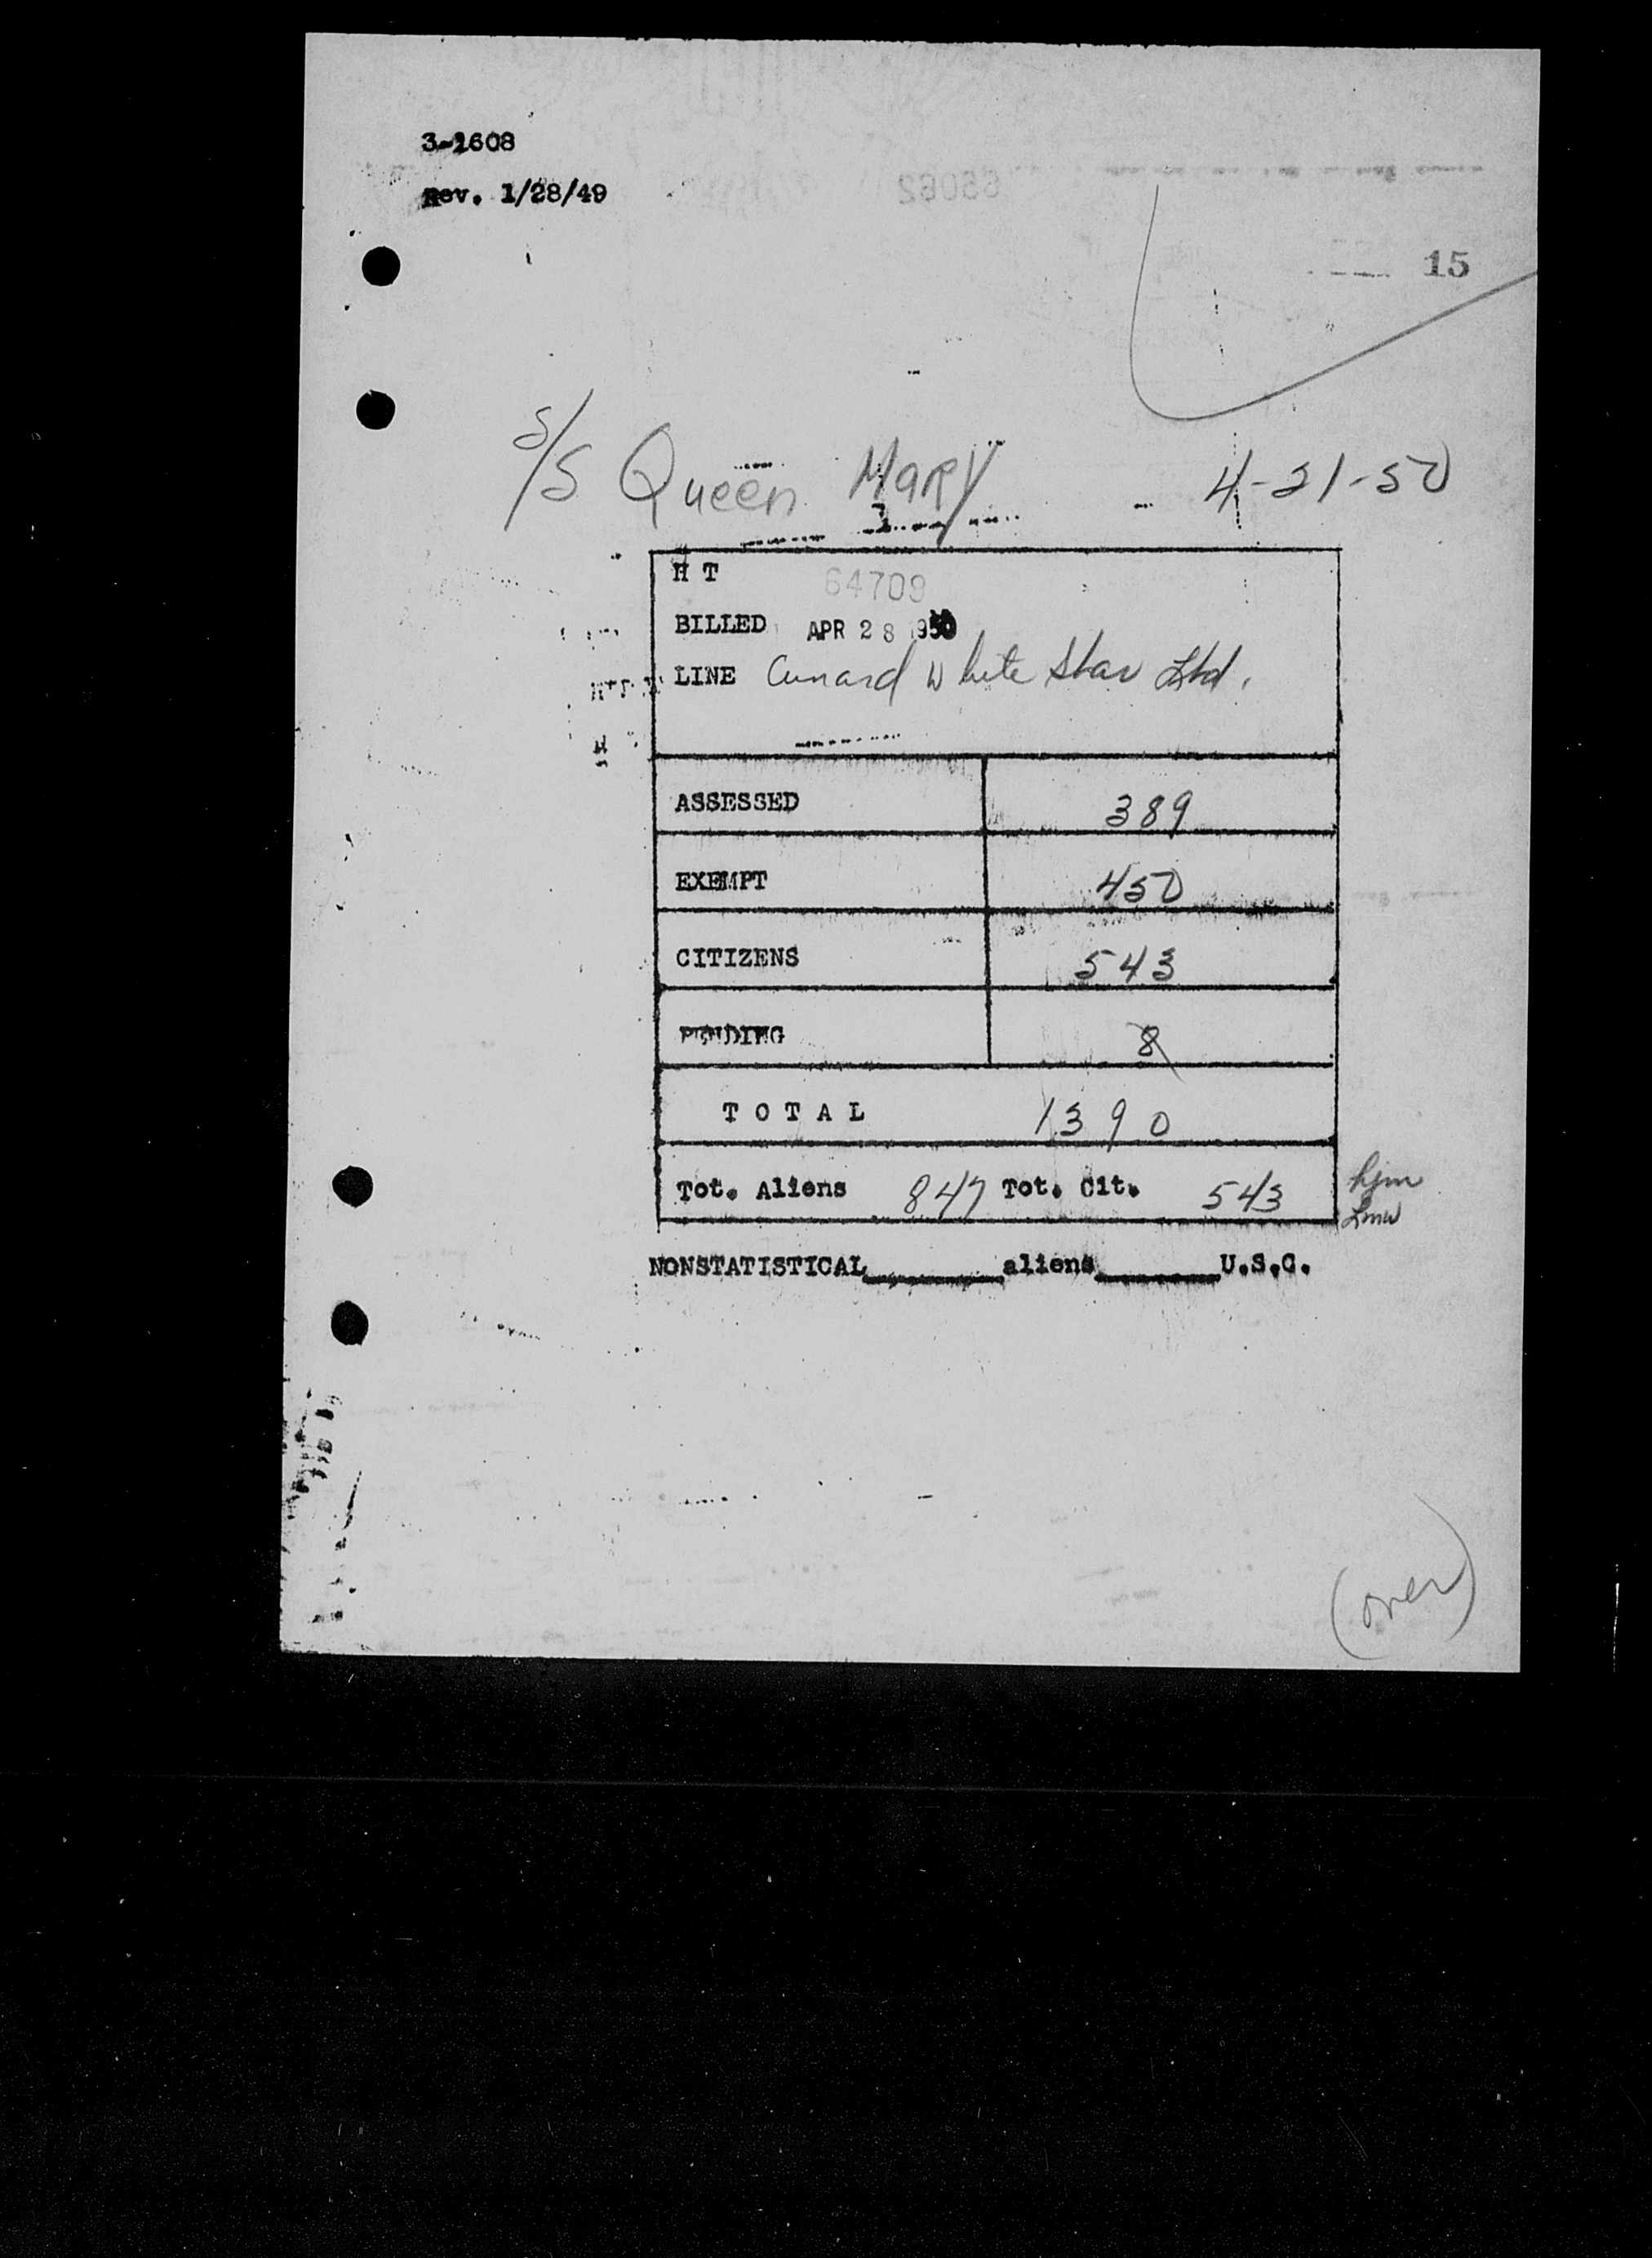 3-1608
Rev. 1/28/49
15
S/S Queen Mary 4-21-50
H T 64709
BILLED APR 28 1950
LINE Cunard White Star Ltd.
ASSESSED 389
EXEMPT 450
CITIZENS 543
PENDING 8
TOTAL 1390
Tot. Aliens 847 Tot. Cit. 543
hjm
Lmw
NONSTATISTICAL aliens U.S.C.
(over)